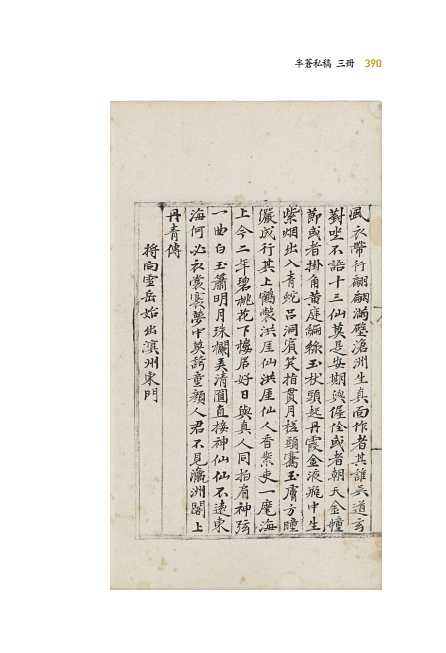 半蒼私稿 三冊 390
風衣帶行翩翩滿壁滄洲生真面作者其誰吳道玄
對坐不語十三仙莫是安期與偓佺或者朝天金幢
節或者掛角黃庭編綠玉杖頭起丹霞金液瓶中生
紫烟出入青蛇呂洞賓笑指貫月槎頭騫玉膚方瞳
儼成行其上鶴氅洪厓仙洪厓仙人香案吏一麾海
上今二年碧桃花下樓居好日與真人同拍肩神弦
一曲白玉簫明月珠欄美清圓直接神仙仙不遠東
海何必衣裳褰夢中莫誇童顏人君不見瀛洲閣上
丹青傳
將向雪岳始出溟州東門